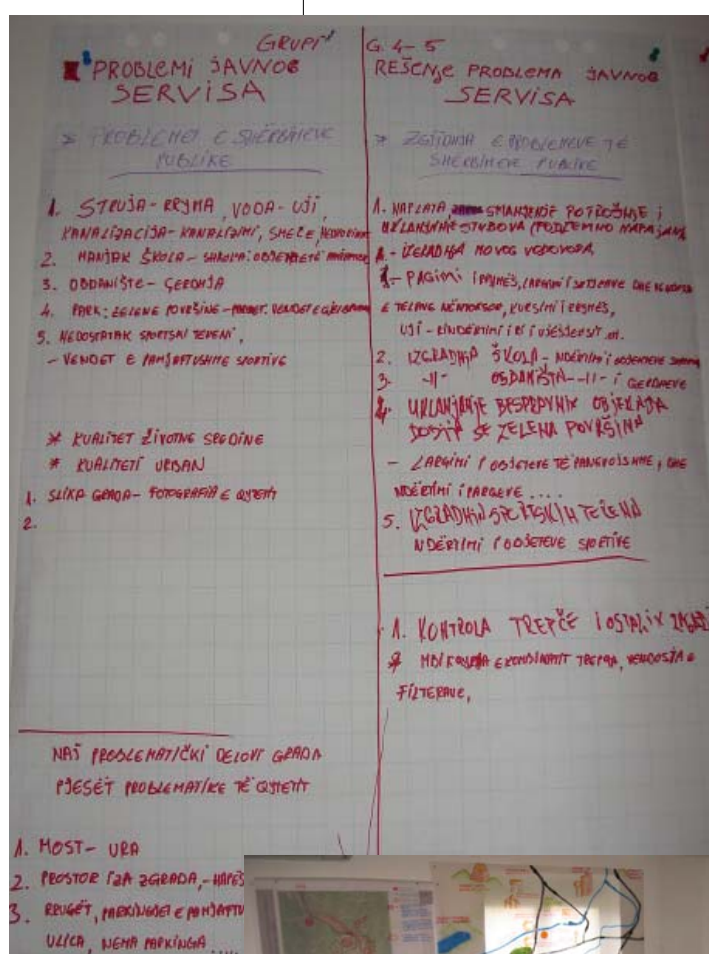 GRUPI
PROBLEMI JAVNOG
SERVISA
* PROBLEMET E SHËRBIMEVE
PUBLIKE
1. STRUJA - RRYMA, VODA - UJI,
KANALIZACIJA - KANALIZIMI, SMEĆE,
2. MANJAK ŠKOLA - SHKOLA: OBJEKTETË
3. OBDANIŠTE - ÇERDHJA
4. PARK: ZELENE POVRŠINE - VENDET E GJELBRUARA
5. NEDOSTATAK SPORTSKI TERENI,
- VENDET E PAMJAFTUSHME SPORTIVE
* KUALITET ŽIVOTNE SREDINE
* KUALITETI URBAN
1. SLIKA GRADA - FOTOGRAFIA E QYTETIT
2.
NAŠ PROBLEMATIČKI DELOVI GRADA
PJESËT PROBLEMATIKE TË QYTETIT
1. MOST - URA
2. PROSTOR IZA ZGRADA, - HAPËS
3. RRUGËT, PARKINGJET E PAMJAFTU
ULICA, NEMA PARKINGA
G. 4-5
REŠENJE PROBLEMA JAVNOG
SERVISA
* ZGJIDHJA E PROBLEMEVE TË
SHËRBIMEVE PUBLIKE
1. NAPLATA, SMANJENJE POTROŠNJE I
UKLANJANJE STUBOVA (PODZEMNO NAPAJANJE)
- IZGRADNJA NOVOG VODOVODA,
- PAGIMI I RRYMËS, LARGIMI I SHTYLLAVE DHE
E TELAVE NËNTOKSOR, KURSIMI I RRYMËS,
UJI - RINDËRTIMI I RI I UJËSJELLSIT
2. IZGRADNJA ŠKOLA - NDËRTIMI I OBJEKTEVE
3. -||- OBDANIŠTA -||- I ÇERDHEVE
4. UKLANJANJE BESPRAVNIX OBJEKATA
DOBIJA SE ZELENA POVRŠINA
- LARGIMI I OBJETEVE TË PANEVOJSHME, DHE
NDËRTIMI I PARGEVE ....
5. IZGRADNJA SPORTSKIH TERENA
NDËRTIMI I OBJETEVE SPORTIVE
1. KONTROLA TREPČE I OSTALIX
* MBIKQYRJA E KOMBINATIT TREPÇA, VENDOSJA E
FILTERAVE,